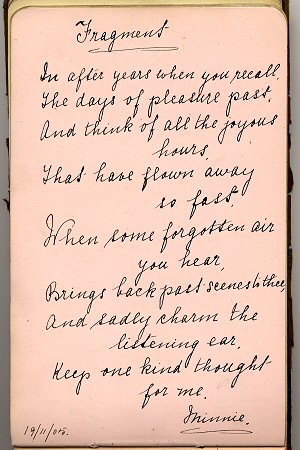 Fragment
In after years when you recall,
The days of pleasure past,
And think of all the joyous
hours,
That have flown away
so fast,
When some forgotten air
you hear,
Brings back past scenes to thee,
And sadly charm the
listening ear,
Keep one kind thought
for me.
Minnie.
19/11/05.